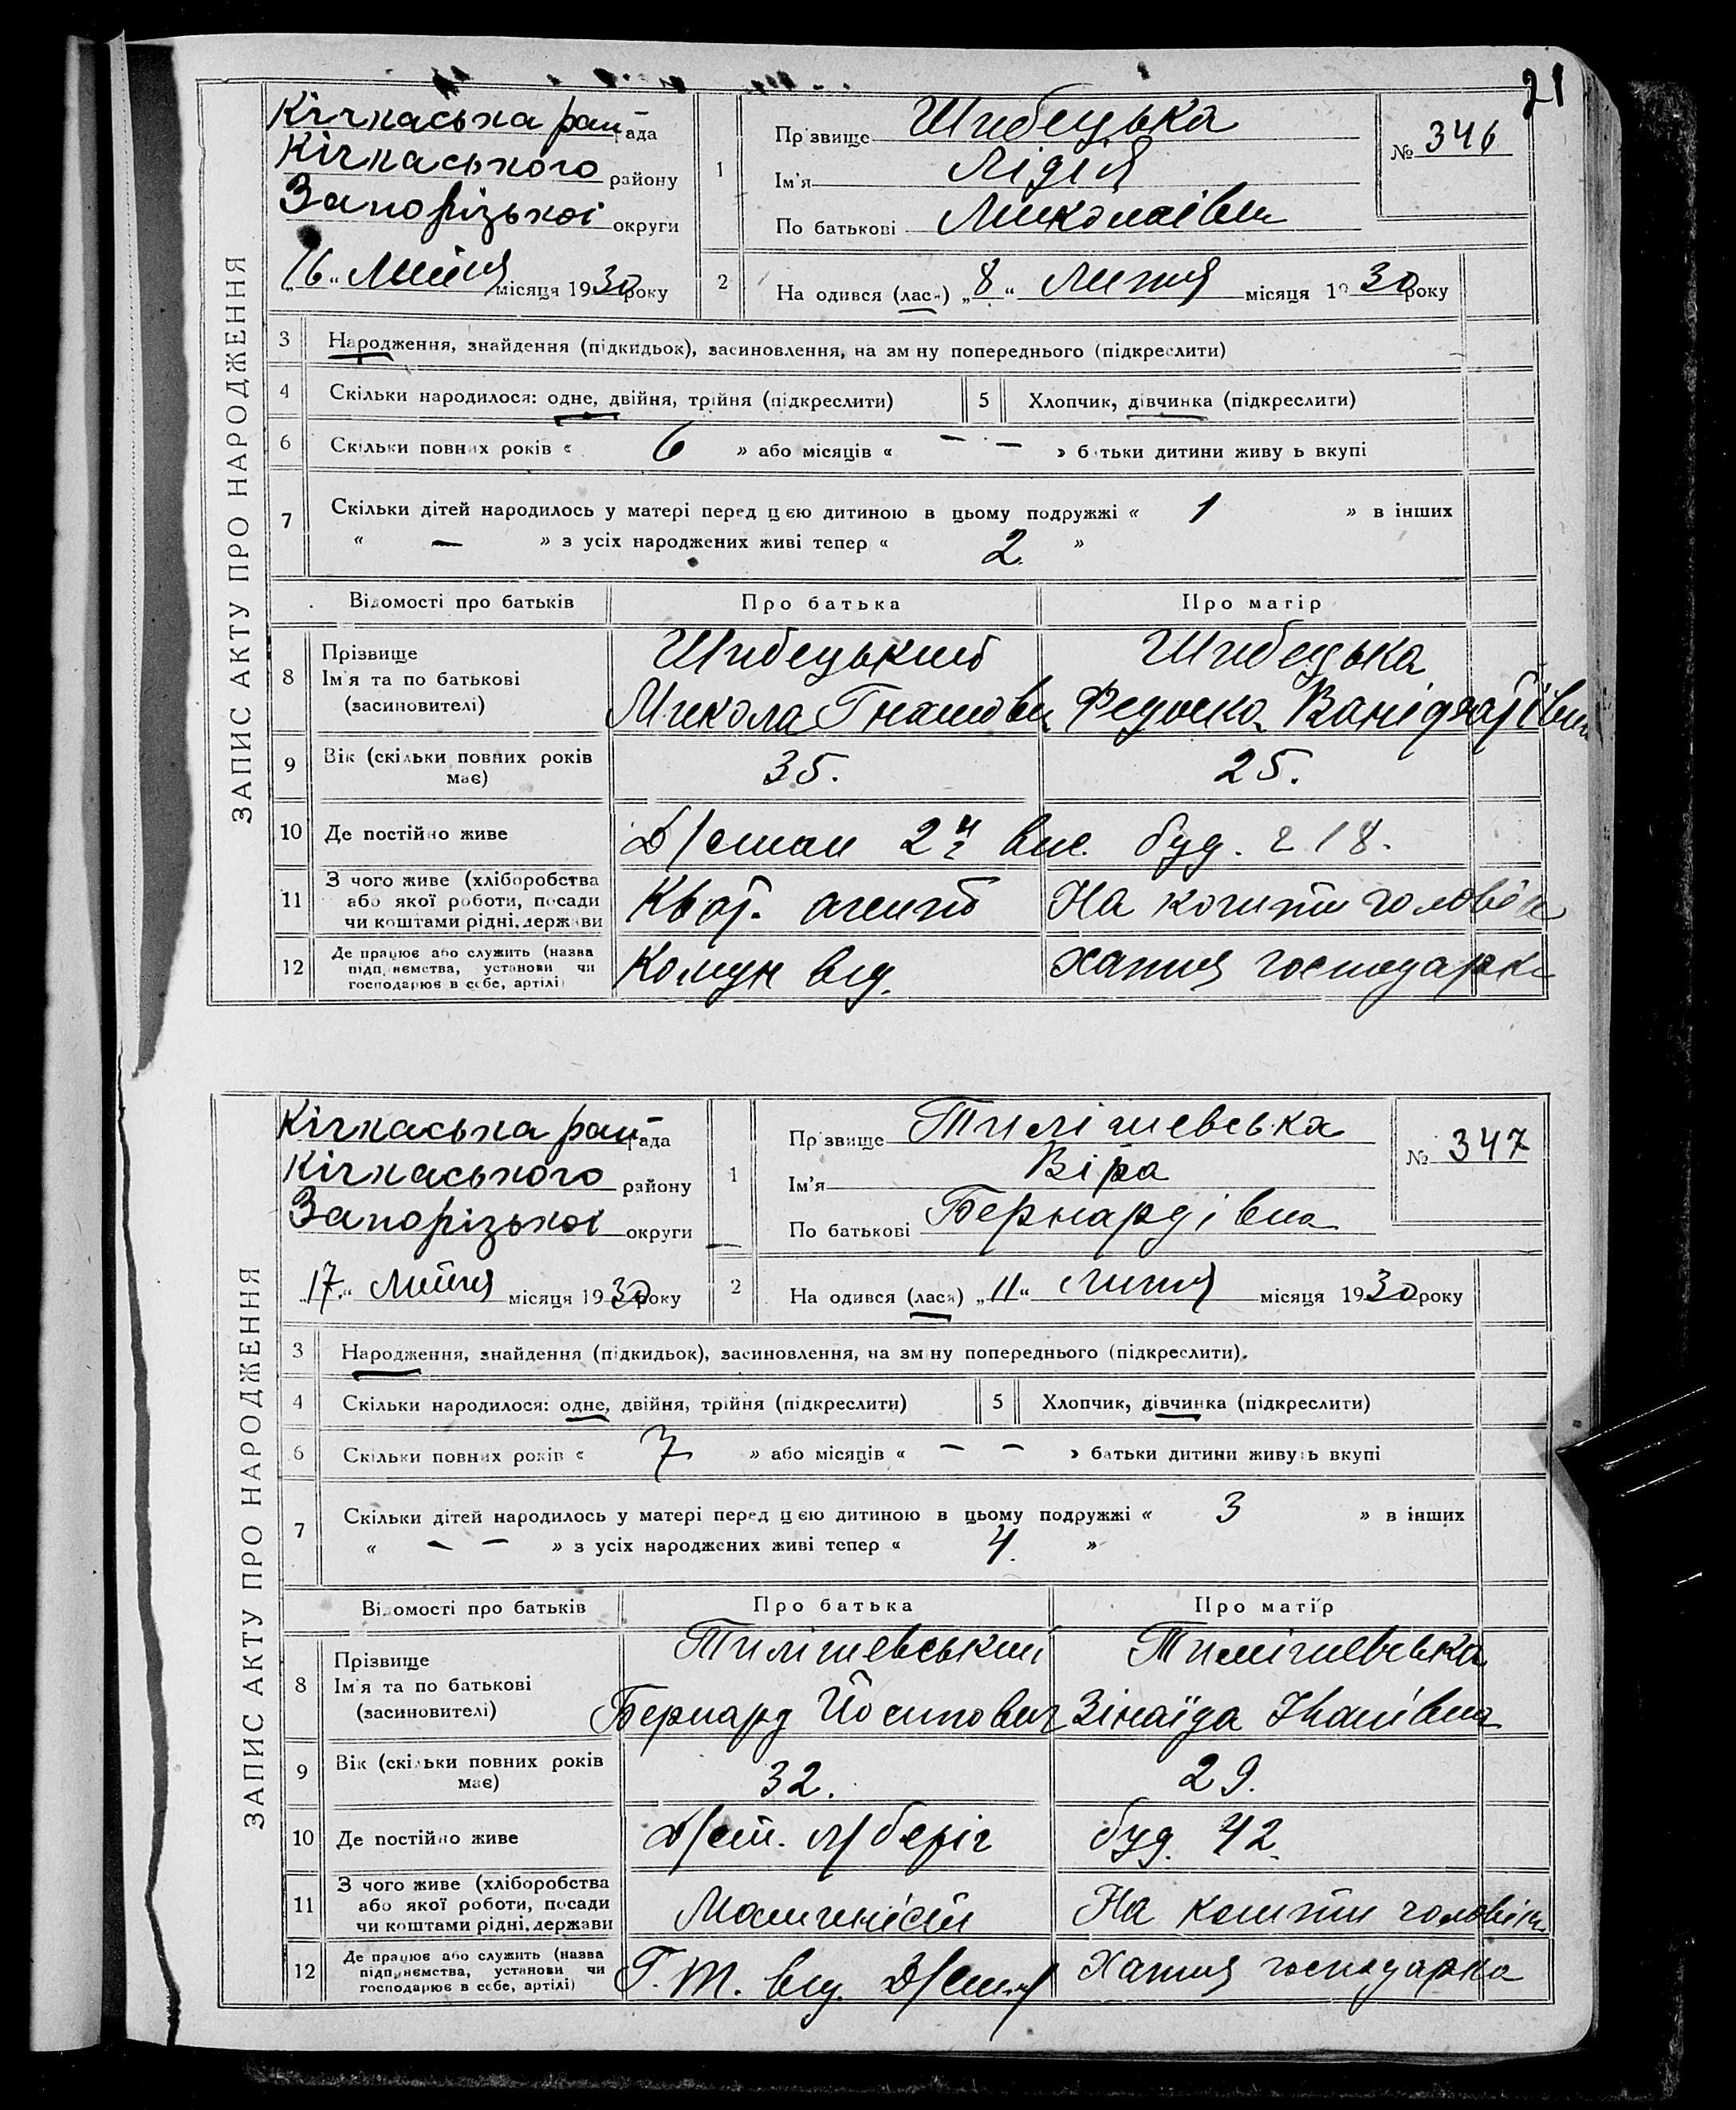 21
ЗАПИС АКТУ ПРО НАРОДЖЕННЯ
Кічкаська рай рада
Кічкаського району
Запорізької округи
„16“ Липня місяця 1930 року
1
Прізвище Шибецька
Ім'я Лідія
По батькові Миколаївна
№ 346
2
На одився (лася) „8“ Липня місяця 1930 року
3 Народження, знайдення (підкидьок), засиновлення, на зміну попереднього (підкреслити)
4 Скільки народилося: одне, двійня, трійня (підкреслити)
5 Хлопчик, дівчинка (підкреслити)
6 Скільки повних років « 6 » або місяців « — — » батьки дитини живуть вкупі
7 Скільки дітей народилось у матері перед цією дитиною в цьому подружжі « 1 » в інших
« — » з усіх народжених живі тепер « 2. »
Відомості про батьків Про батька Про матір
8 Прізвище Шибецький Шибецька
Ім'я та по батькові
(засиновителі) Микола Гнатович
9 Вік (скільки повних років має) 35. 25.
10 Де постійно живе Д/стан буд. 18.
11 З чого живе (хліборобства
або якої роботи, посади
чи коштами рідні, держави Кварт. агент На кошти чоловіка
12 Де працює або служить (назва
підприємства, установи чи
господарює в себе, артілі) Комун від. Хатня господарка
ЗАПИС АКТУ ПРО НАРОДЖЕННЯ
Кічкаська рай рада
Кічкаського району
Запорізької округи
„17.“ Липня місяця 1930 року
1
Прізвище Тилішевська
Ім'я Віра
По батькові Бернардівна
№ 347
2
На одився (лася) „11“ Липня місяця 1930 року
3 Народження, знайдення (підкидьок), засиновлення, на зміну попереднього (підкреслити).
4 Скільки народилося: одне, двійня, трійня (підкреслити)
5 Хлопчик, дівчинка (підкреслити)
6 Скільки повних років « 7 » або місяців « — — » батьки дитини живуть вкупі
7 Скільки дітей народилось у матері перед цією дитиною в цьому подружжі « 3 » в інших
« — — » з усіх народжених живі тепер « 4. »
Відомості про батьків Про батька Про матір
8 Прізвище Тилішевський Тилішевська
Ім'я та по батькові
(засиновителі) Бернард Йосипович Зінаїда Іванівна
9 Вік (скільки повних років має) 32. 29.
10 Де постійно живе Д/ст. л/беріг буд. 42.
11 З чого живе (хліборобства
або якої роботи, посади
чи коштами рідні, держави Машиніст На кошти чоловіка
12 Де працює або служить (назва
підприємства, установи чи
господарює в себе, артілі) Г. Т. від. Хатня господарка